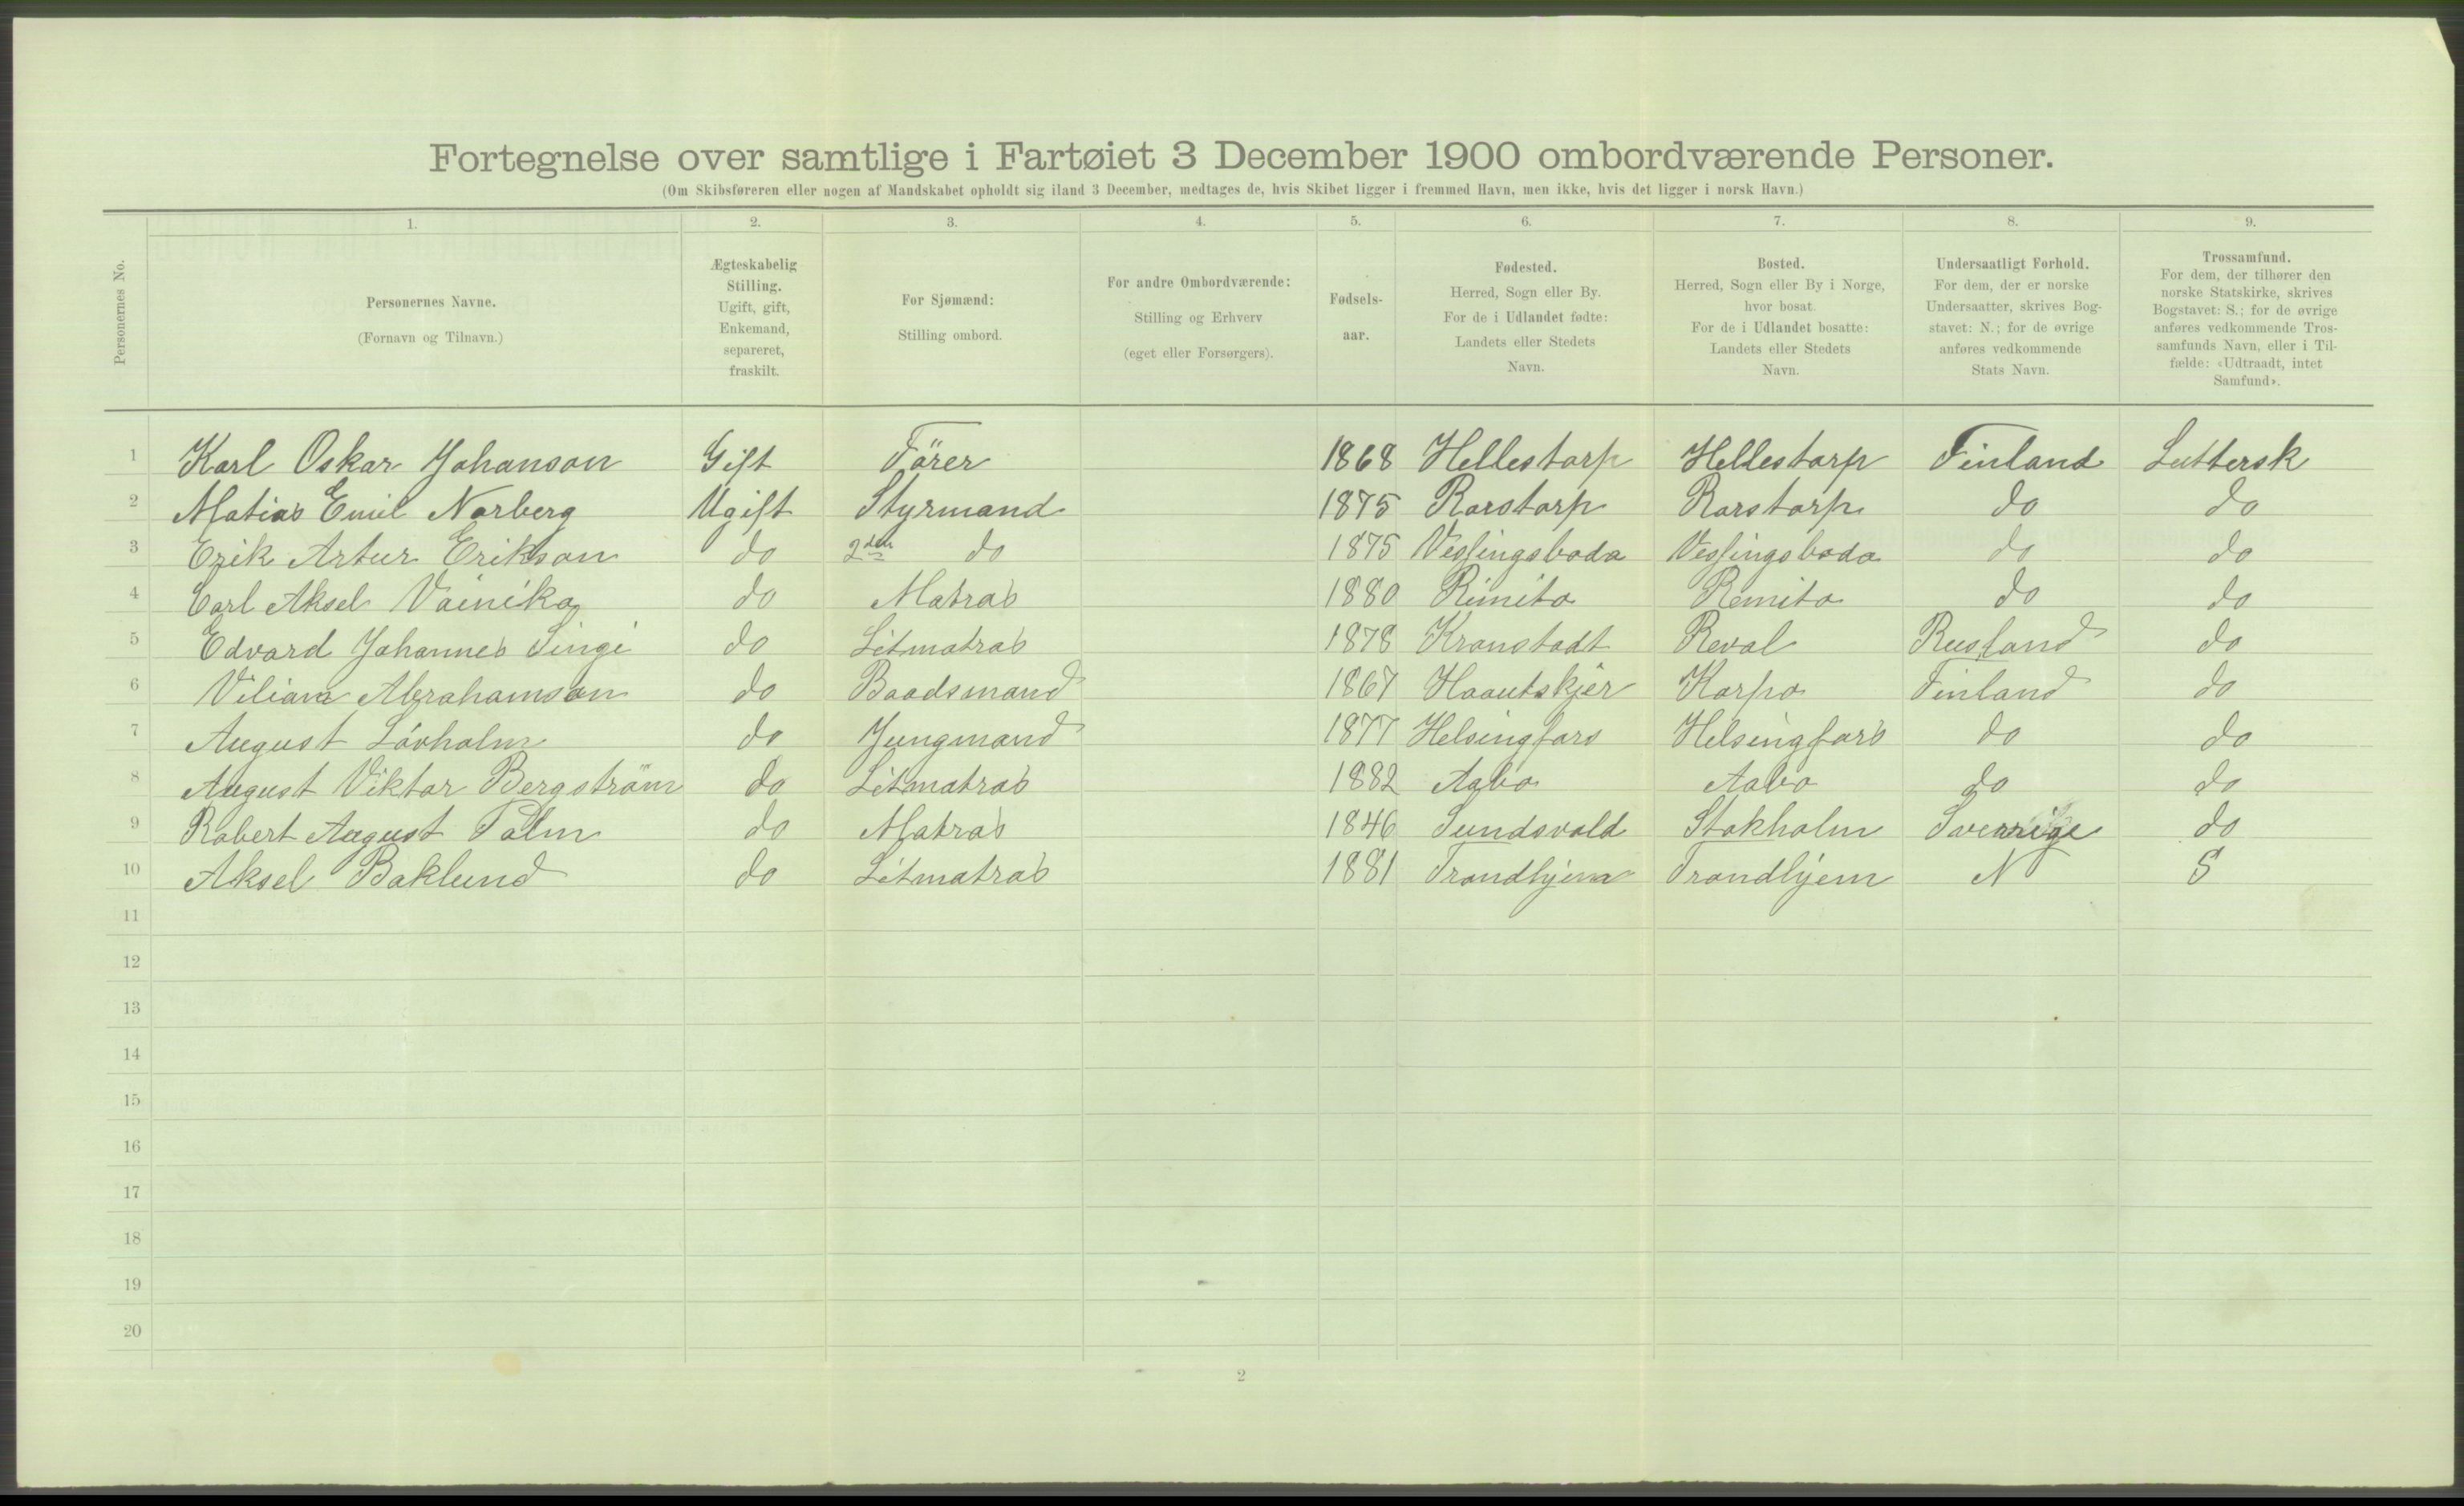 Fortegnelse over samtlige i Fartøiet 3 December 1900 ombordværende Personer.
(Om Skibsføreren eller nogen af Mandskabet opholdt sig iland 3 December, medtages de, hvis Skibet ligger i fremmed Havn, men ikke, hvis det ligger i norsk Havn.)
Personernes No.
1. 2. 3. 4. 5. 6. 7. 8. 9.
Personernes Navne.
(Fornavn og Tilnavn.)
Ægteskabelig
Stilling.
Ugift, gift,
Enkemand,
separeret,
fraskilt.
For Sjømænd:
Stilling ombord.
For andre Ombordværende:
Stilling og Erhverv
(eget eller Forsørgers).
Fødsels-
aar.
Fødested.
Herred, Sogn eller By.
For de i Udlandet fødte:
Landets eller Stedets
Navn.
Bosted.
Herred, Sogn eller By i Norge,
hvor bosat.
For de i Udlandet bosatte:
Landets eller Stedets
Navn.
Undersaatligt Forhold.
For dem, der er norske
Undersaatter, skrives Bog-
stavet: N.; for de øvrige
anføres vedkommende
Stats Navn.
Trossamfund.
For dem, der tilhører den
norske Statskirke, skrives
Bogstavet: S.; for de øvrige
anføres vedkommende Tros-
samfunds Navn, eller i Til-
fælde: «Udtraadt, intet
Samfund».
1 Karl Oskar Johanson Gift Förer 1868 Hellestorp Hellestorp Finland Luttersk
2 Matias Emil Norberg Ugift Styrmand 1875 Rorstorp Rorstorp do do
3 Erik Artur Erikson do 2den do 1875 Vessingsboda Vessingsboda do do
4 Carl Aksel Vainika do Matros 1880 Rimito Remito do do
5 Edvard Johannes Singi do Letmatros 1878 Kronstadt Reval Rusland do
6 Viliam Abrahamson do Baadsmand 1867 Haautskjer Korpo Finland do
7 August Lövholm do Jungmand 1877 Helsingfors Helsingfors do do
8 August Viktor Bergström do Letmatros 1882 Aabo Aabo do do
9 Robert August Palm do Matros 1846 Sundsvald Stokholm Sverrige do
10 Aksel Baklund do Letmatros 1881 Trondhjem Trondhjem N S
11
12
13
14
15
16
17
18
19
20
2